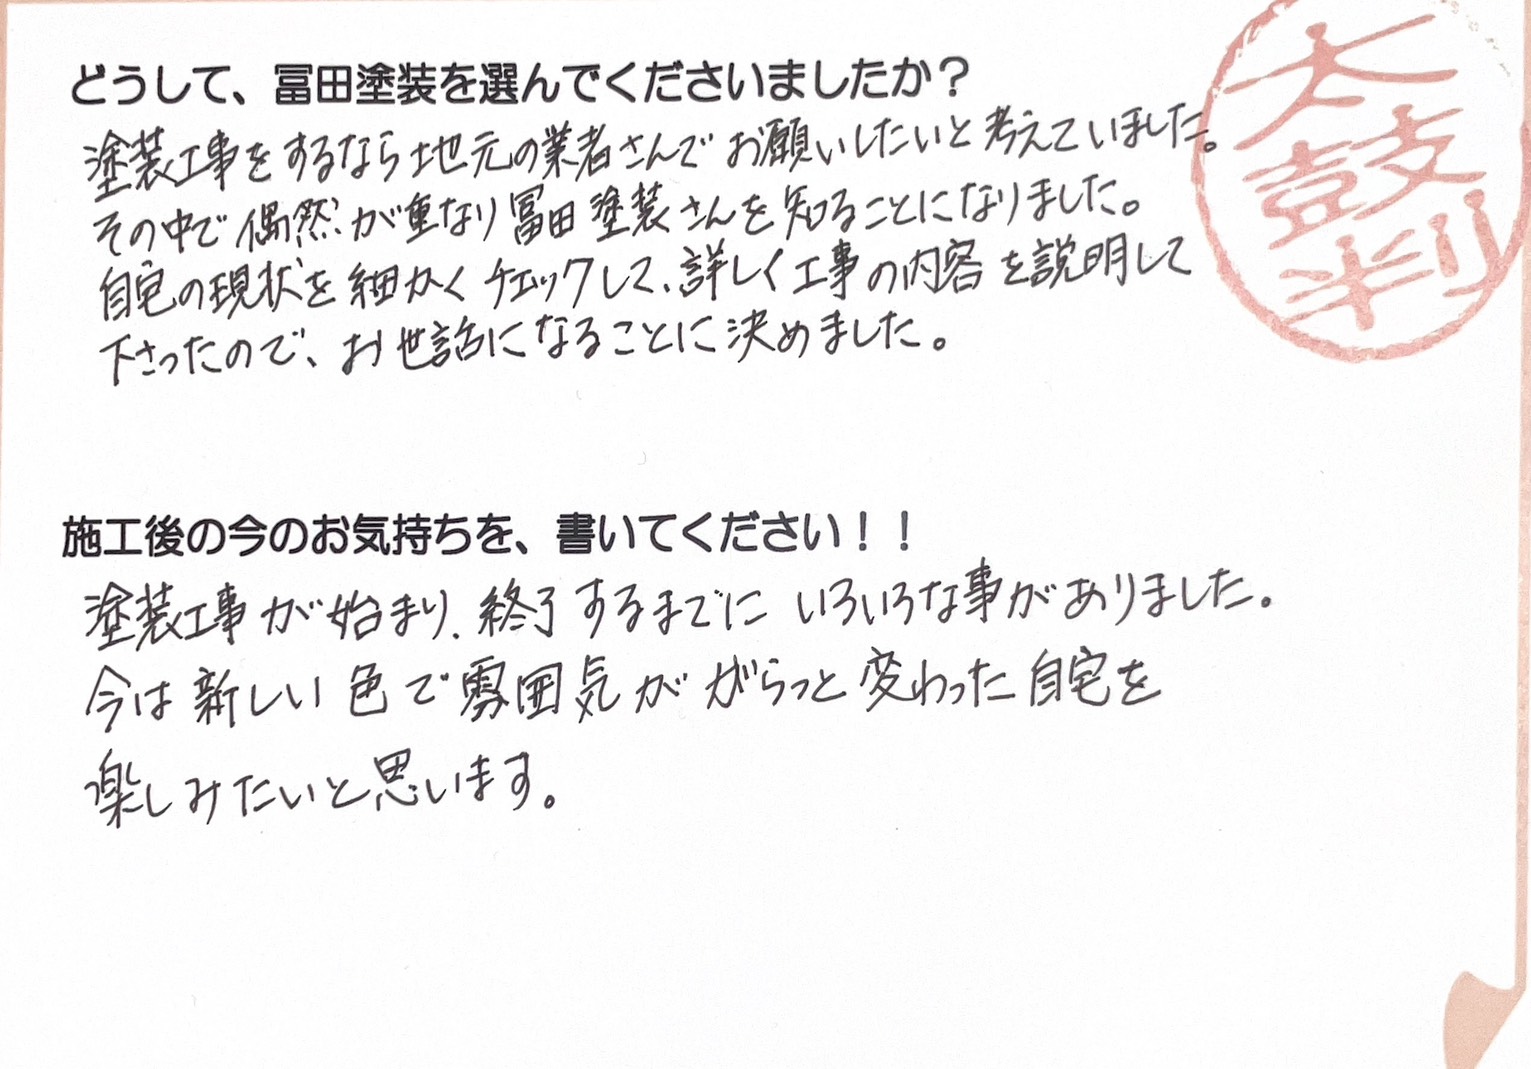 どうして、冨田塗装を選んでくださいましたか？
塗装工事をするなら地元の業者さんでお願いしたいと考えていました。
その中で偶然が重なり冨田塗装さんを知ることになりました。
自宅の現状を細かくチェックして、詳しく工事の内容を説明して
下さったので、お世話になることに決めました。
太鼓判
施工後の今のお気持ちを、書いてください！！
塗装工事が始まり、終了するまでにいろいろな事がありました。
今は新しい色で雰囲気ががらっと変わった自宅を
楽しみたいと思います。